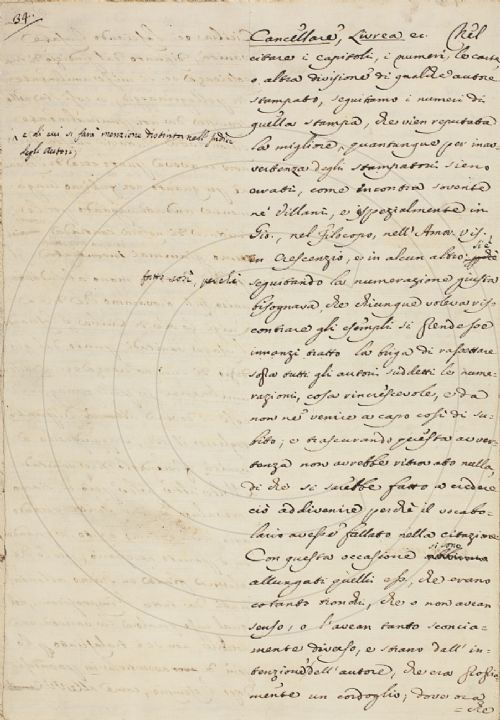 34.
Cancellare, Livrea ec. Nel
citare i capitoli, i numeri, le carte
o altra divisione di qualche autore
stampato, seguitamo i numeri di
quella stampa, che vien reputata
la migliore, quantunque per inav-
vertenza degli stampatori sieno
errati, come incontra sovente
ne' Villani, e spezialmente in
Gio., nel Filocopo, nell'Amor. Vis.
in Crescenzio, e in alcun altro si è
seguitando la numerazione giusta
bisognava, che chiunque voleva ris-
contrare gli esempli si prendesse
innanzi tratto la briga di rassettare
sopra tutti gli autori suddetti le nume-
razioni, cosa rincrescevole, e da
non ne venire a capo così di su-
bito; e trascurando questa avver-
tenza non avrebbe ritrovato nulla,
di che si sarebbe fatto a credere
ciò addivenire perchè il vocabo-
lario avesse fallato nella citazione
Con questa occasione si sono
allungati quelli esse, che erano
cotanto tronchi, che o non avean
senso, o l'avean tanto sconcia-
mente diverso, e strano dall'in-
tenzione dell'autore, che era
mente un cordoglio; dove ora
= che
e di cui si farà menzione distinta nell'Indice
degli Autori;
fatto così, perchè